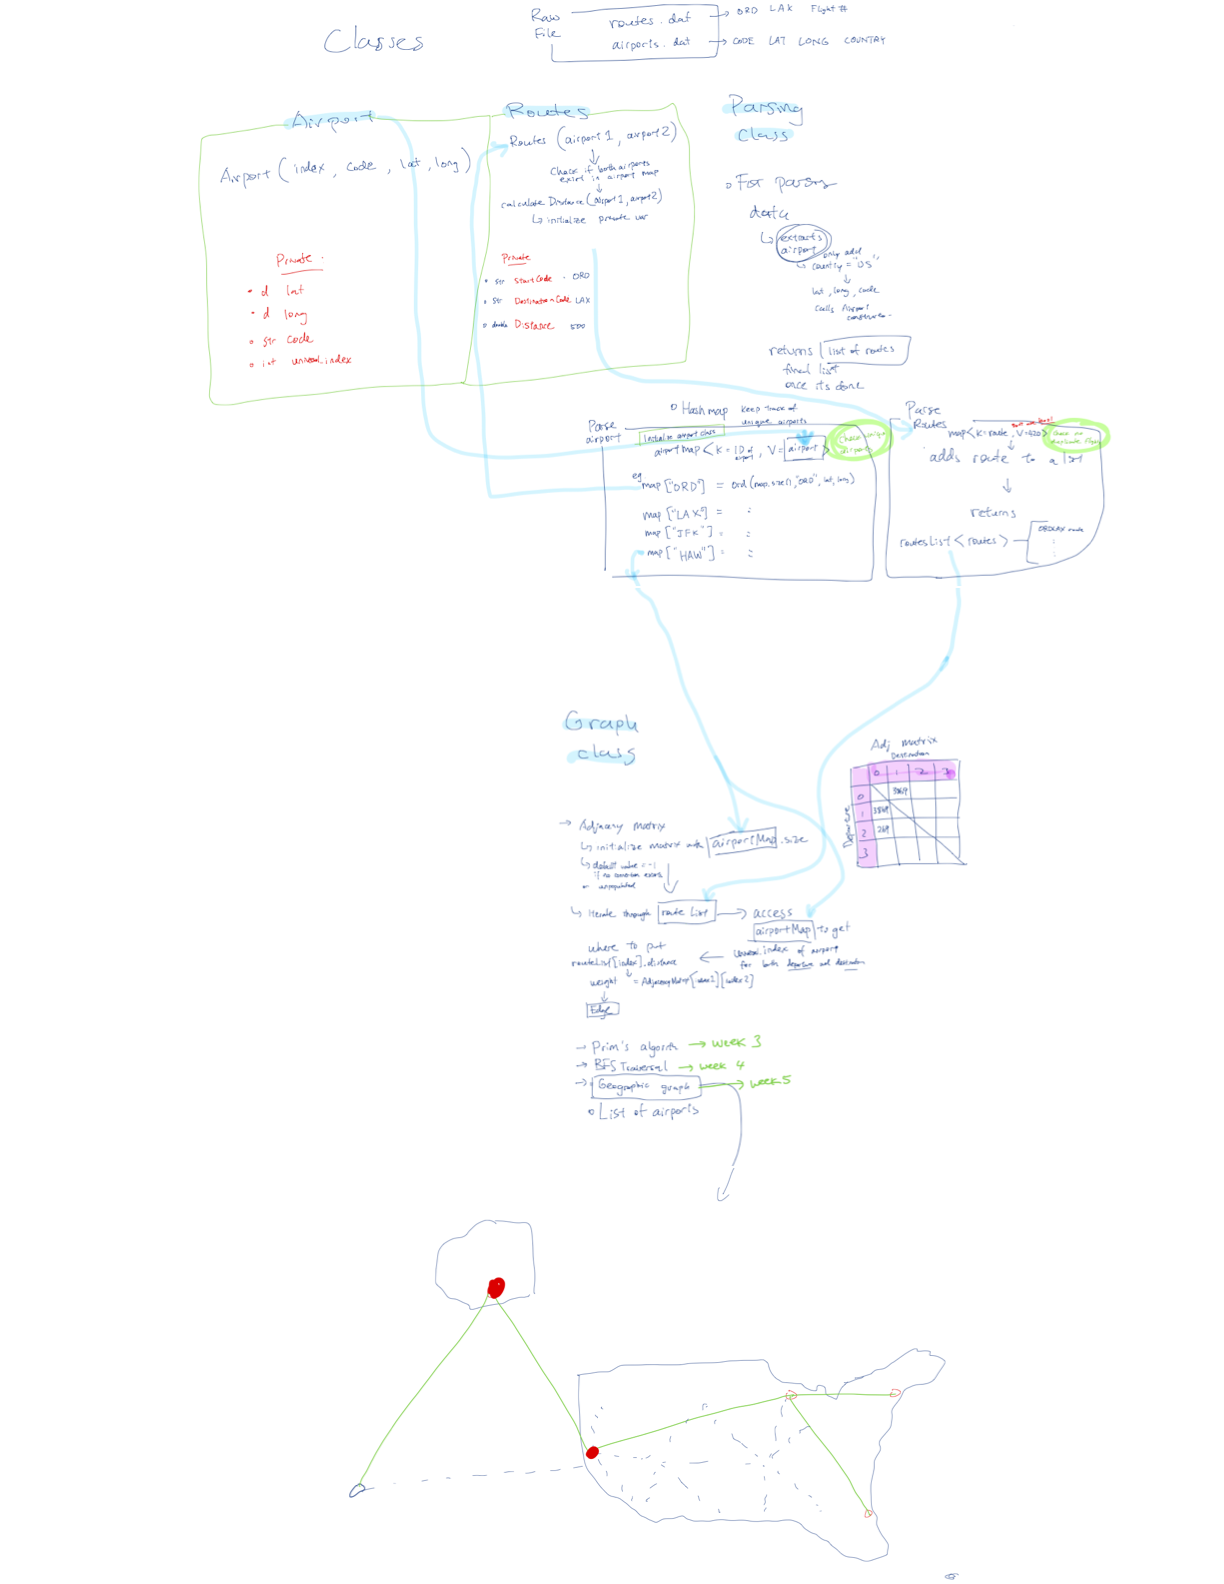 Classes
Raw
File
routes.dat
airports.dat
ORD LAX Flight #
CODE LAT LONG COUNTRY
Airport
Airport (index, code, lat, long)
Private
d lat
d long
str code
int universal index
Routes
Routes (airport 1, airport 2)
Check if both airports
exist in airport map
calculate Distance (airport 1, airport 2)
initialize private var
Private
str StartCode - ORD
str DestinationCode LAX
double Distance 500
Parsing
class
For parsing
data
extracts
airport
only add
country = "US"
lat, long, code
calls Airport
constructor
returns list of routes
final list
once its done
Hash map keep track of
unique airports
Parse
airport
Initialize airport class
airport map < K = ID of
airport, V = airport >
eg
map ["ORD"] = Ord (map.size(), "ORD", lat, long)
map ["LAX"] = :
map ["JFK"] = :
map ["HAW"] = :
Parse
Routes
map < K = route, V = 420 >
check no
duplicate flights
adds route to a list
returns
routesList < routes >
ORDLAX route
Graph
class
Adj matrix
Destination
0 1 2 3
Departure
0 3869
1 3869
2 269
3
Adjacency matrix
initialize matrix with airportMap.size
default value = -1
if no connection exists
or unpopulated
Iterate through route List
access
airportMap to get
universal index of airport
for both departure and destination
where to put
routeList[index].distance
weight = AdjacencyMatrix[index1][index2]
Edge
Prim's algorith → week 3
BFS Traversal → week 4
Geographic graph → week 5
List of airports